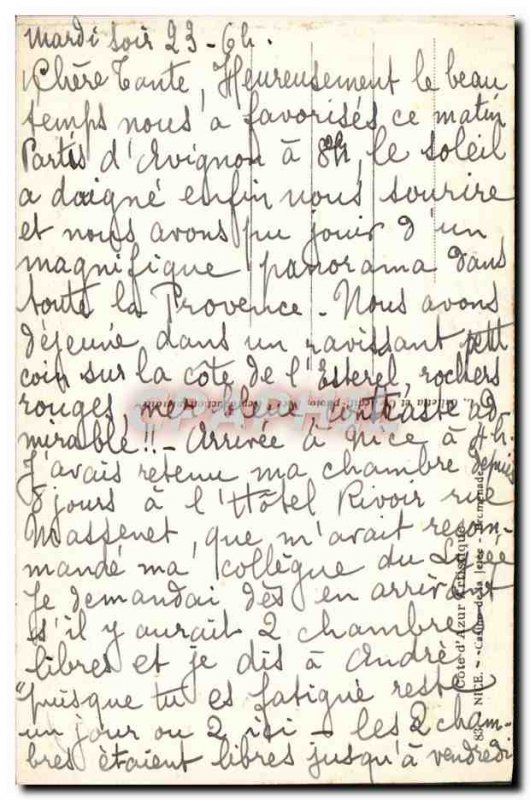 Mardi soir 23 - 6h.
Chère Tante, Heureusement le beau
temps nous a favorisés ce matin
Partis d'Avignon à 8h, le soleil
a daigné enfin nous sourire
et nous avons pu jouir d'un
magnifique panorama dans
toute la Provence - Nous avons
déjeuné dans un ravissant petit
coin sur la côte de l'Esterel, rochers
rouges, mer bleue contraste ad-
mirable!! - Arrivée à Nice à 4h.
J'avais retenu ma chambre depuis
8 jours à l'Hôtel Rivoir rue
Massenet, que m'avait recom-
mandé ma collègue du Lycée
Je demandai dès en arrivant
s'il y aurait 2 chambres
libres et je dis à André
"puisque tu es fatigué reste
un jour ou 2 ici - les 2 cham-
bres étaient libres jusqu'à vendredi
Côte d'Azur Artistique
83 - NICE. - Casino de la Jetée - Promenade